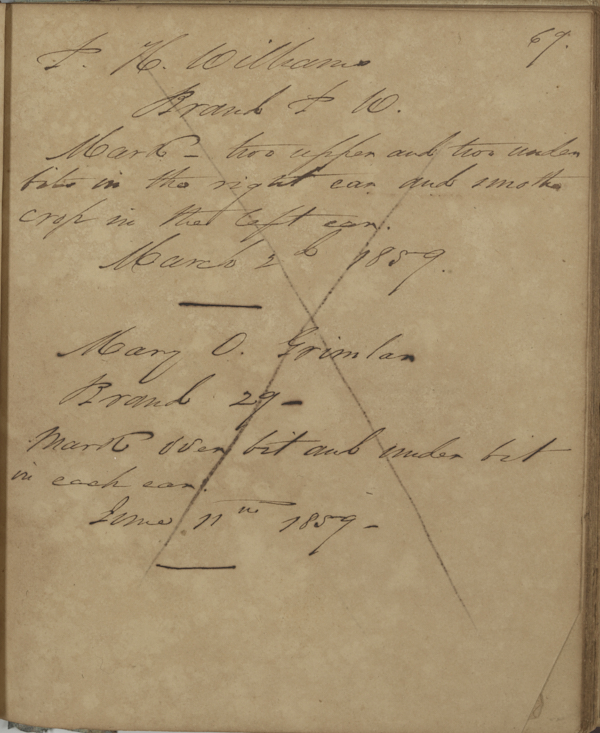 69.
P. H. Williams
Brand P W.
Mark - two upper and two under
bits in the right ear and smothe
crop in the left ear.
March 2d 1859.
Mary O. Grimlan
Brand 29 -
Mark over bit and under bit
in each ear.
June 11th 1859 -